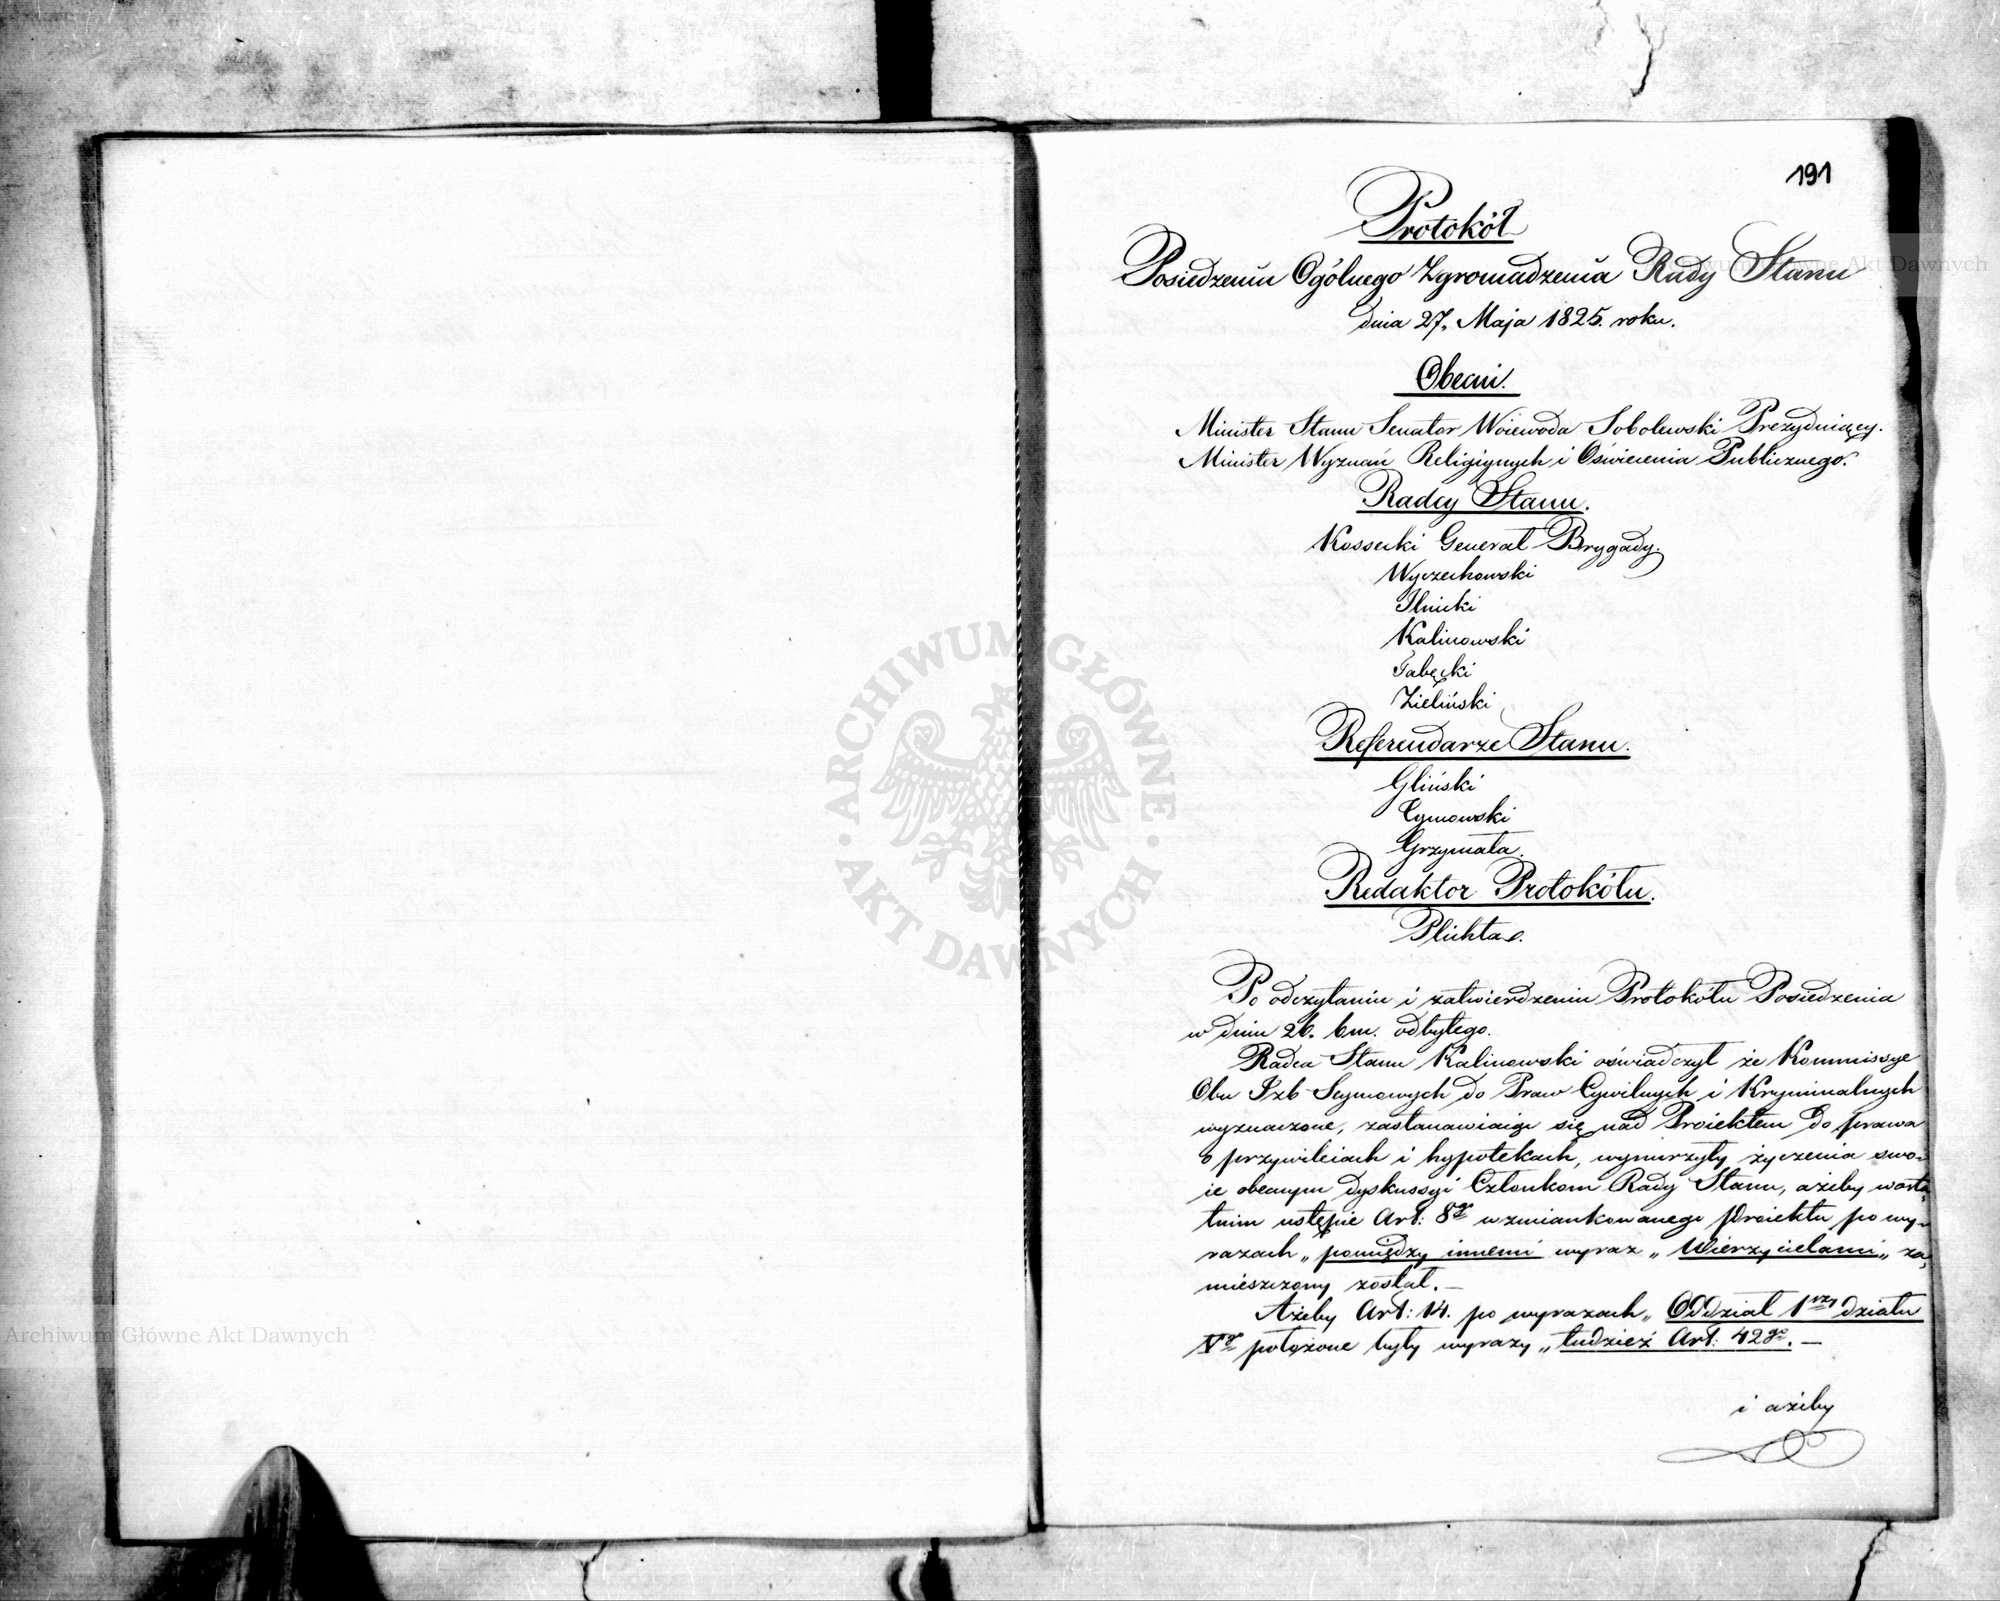 191
Protokół
Posiedzenia Ogólnego Zgromadzenia Rady Stanu
dnia 27. Maja 1825. roku.
Obecni.
Minister Stanu Senator Woiewoda Sobolewski Prezyduiący.
Minister Wyznań Religiynych i Oświecenia Publicznego.
Radcy Stanu.
Kossecki Generał Brygady.
Wyczechowski
Ilnicki
Kalinowski
Tabęcki
Zieliński
Referendarze Stanu.
Gliński
Cymowski
Grzymała.
Redaktor Protokółu.
Plichta.
Po odczytaniu i zatwierdzeniu Protokółu Posiedzenia
w dniu 26. bm. odbytego.
Radca Stanu Kalinowski oświadczył że Kommissye
Obu Izb Seymowych do Praw Cywilnych i Kryminalnych
wyznaczone, zastanawiaiąc się nad Proiektem do prawa
o przywileiach i hypotekach, wynurzyły życzenia swo-
ie obecnym dyskussyi Członkom Rady Stanu, ażeby w osta-
tnim ustępie Art: 8go wzmiankowanego Proiektu po wy-
razach „pomiędzy innemi wyraz „Wierzycielami„ za-
mieszczony został. —
Ażeby Art: 14. po wyrazach „Oddział 1wszy działu
Vgo położone były wyrazy „tudzież Art: 42go. —
i ażeby
ARCHIWUM GŁÓWNE · AKT DAWNYCH ·
Archiwum Główne Akt Dawnych
Archiwum Główne Akt Dawnych